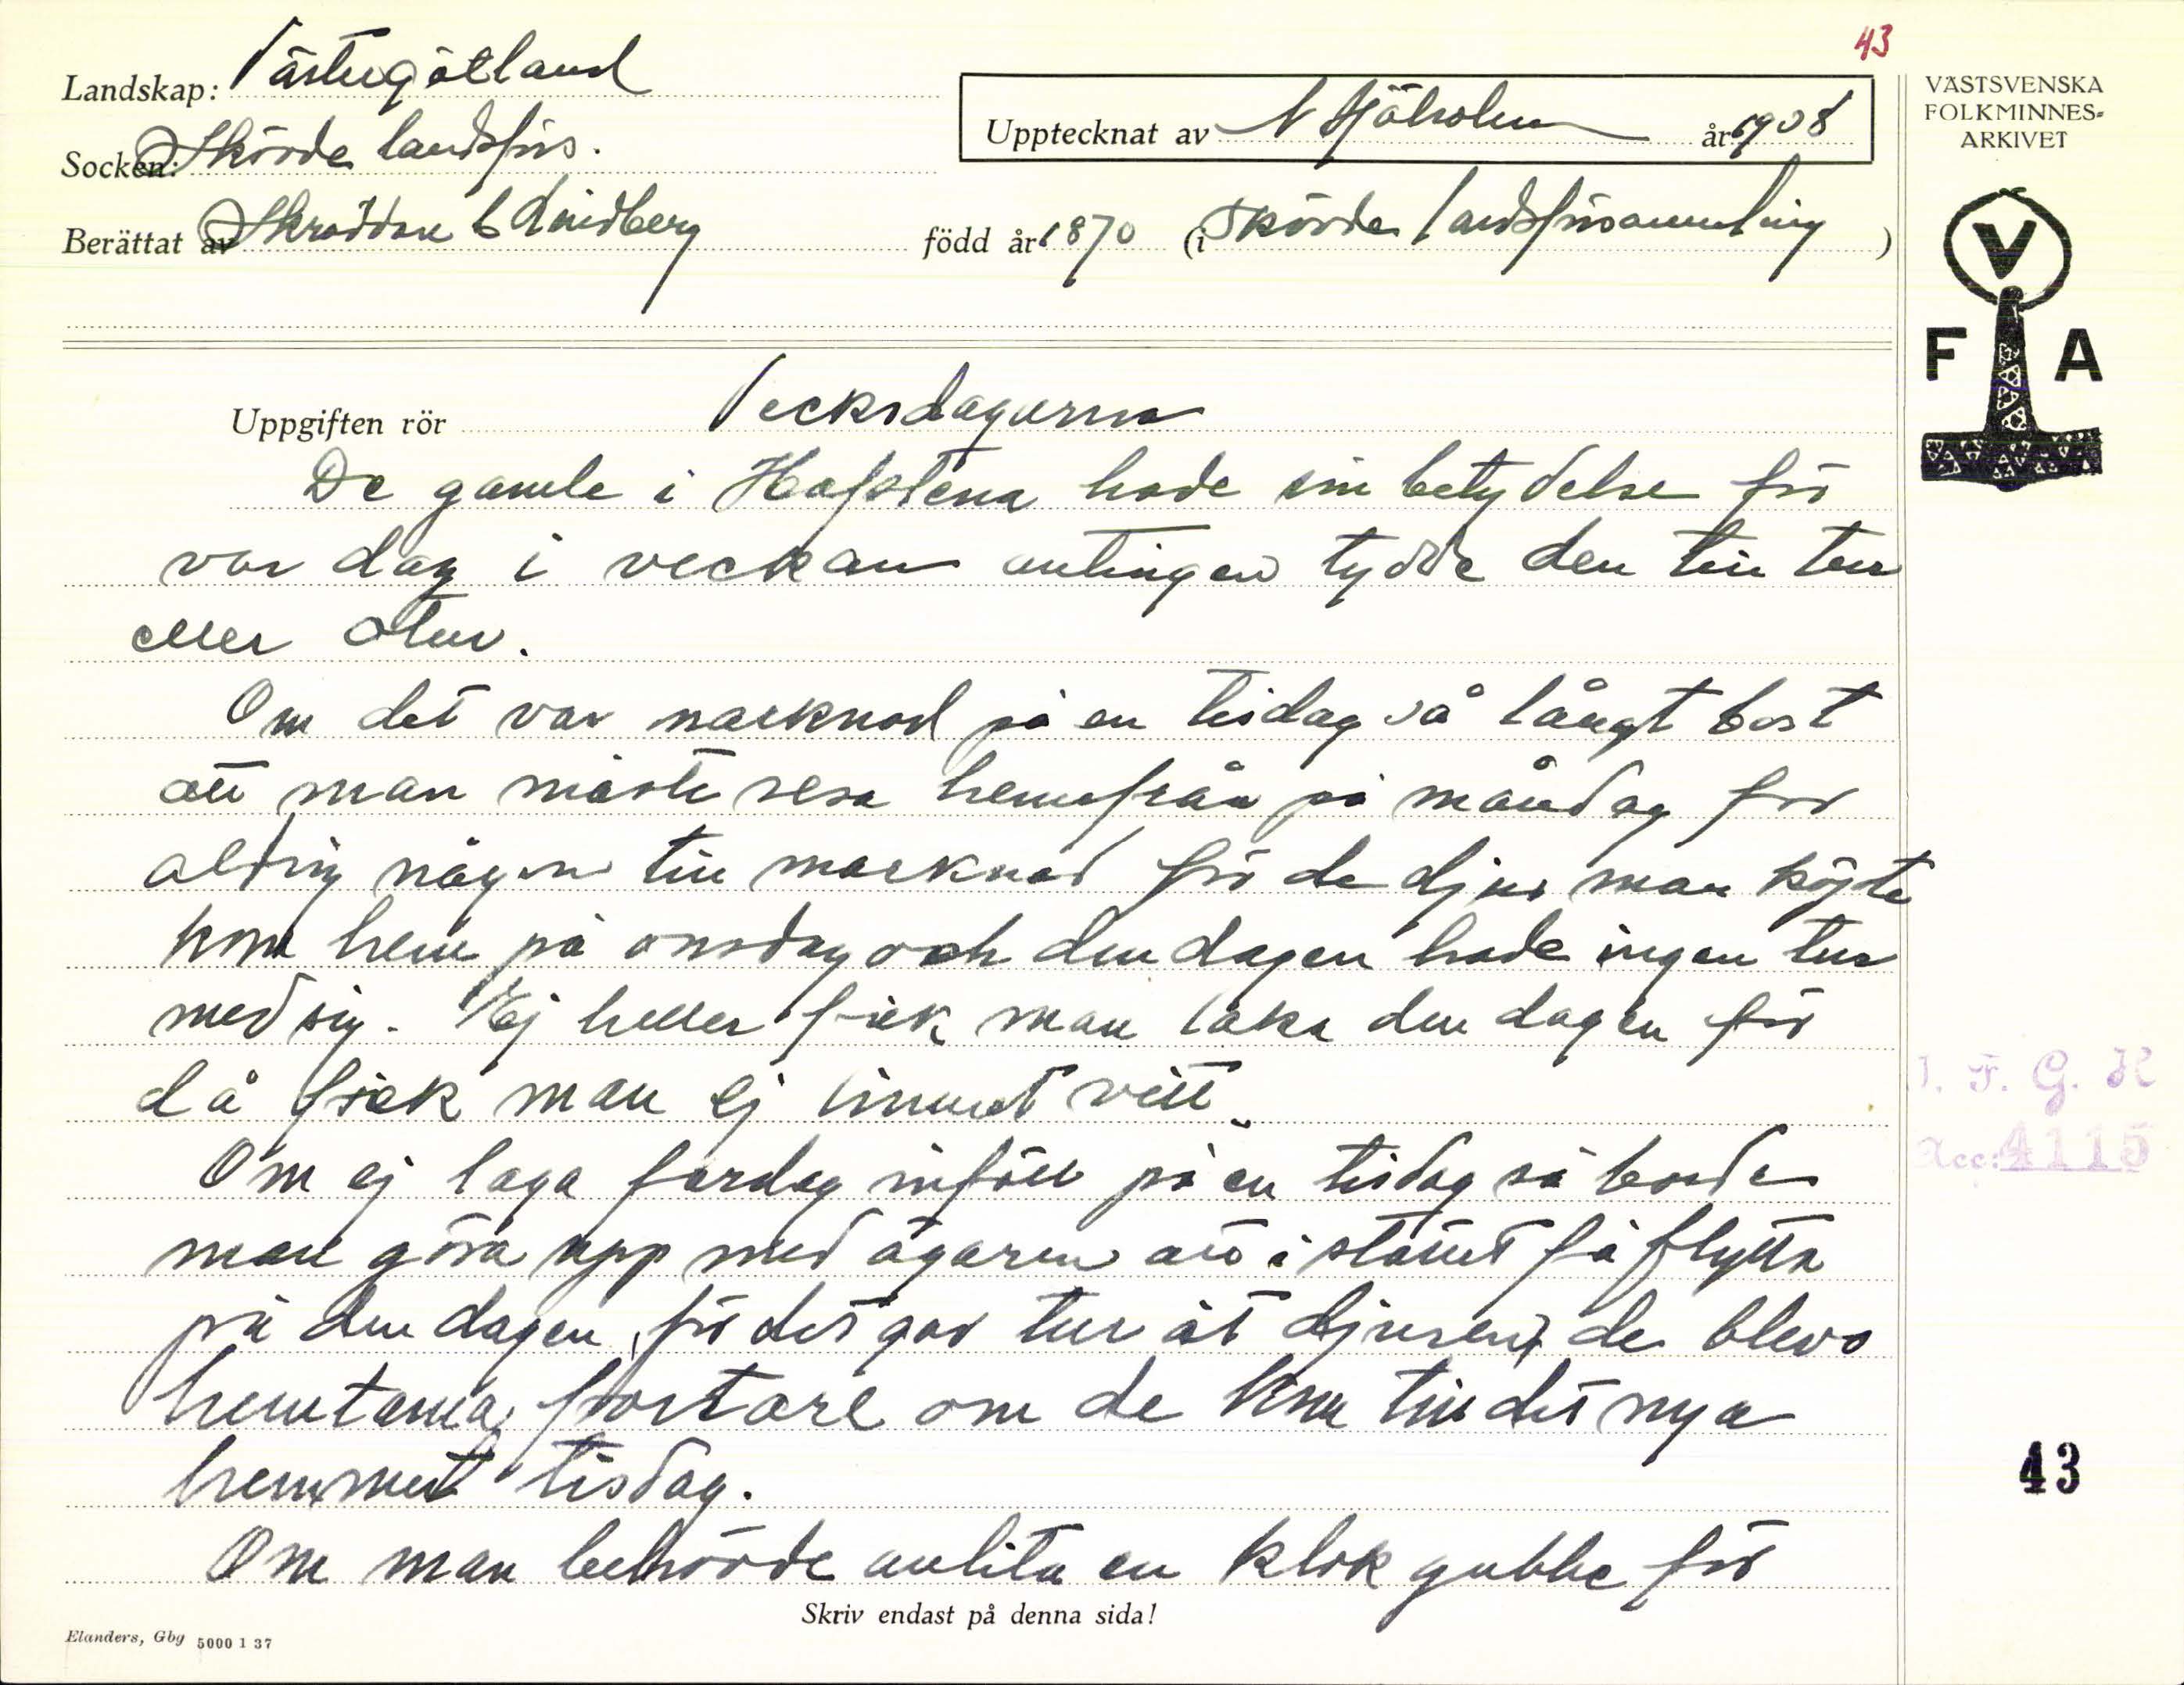 43
Landskap: Västergötland
Socken: Skövde landsförs.
Upptecknat av N Sjöholm år 1908
VÄSTSVENSKA
FOLKMINNES-
ARKIVET
Berättat av Skräddare C Lindberg född år 1870 (i Skövde landsförsamling)
V
F A
Uppgiften rör Veckodagarna
De gamle i Hafstena hade sin betydelse för
var dag i veckan antingen tydde den till tur
eller otur.
Om det var marknad på en tisdag så långt bort
att man måste resa hemifrån på måndag for
aldrig någon till marknad för de djur man köpte
kom hem på onsdag och den dagen hade ingen tur
med sig. Ej heller fick man laka den dagen för
då fick man ej linnet vitt.
Om ej laga fardag inföll på en tisdag så borde
man göra upp med ägaren att i stället få flytta
på den dagen, för det gav tur åt djuren, de blevo
hemtama fortare om de kom till det nya
hemmet tisdag.
Om man behövde anlita en klok gubbe för
I. F. G. H
Acc: 4115
43
Skriv endast på denna sida!
Elanders, Gbg 5000 1 37